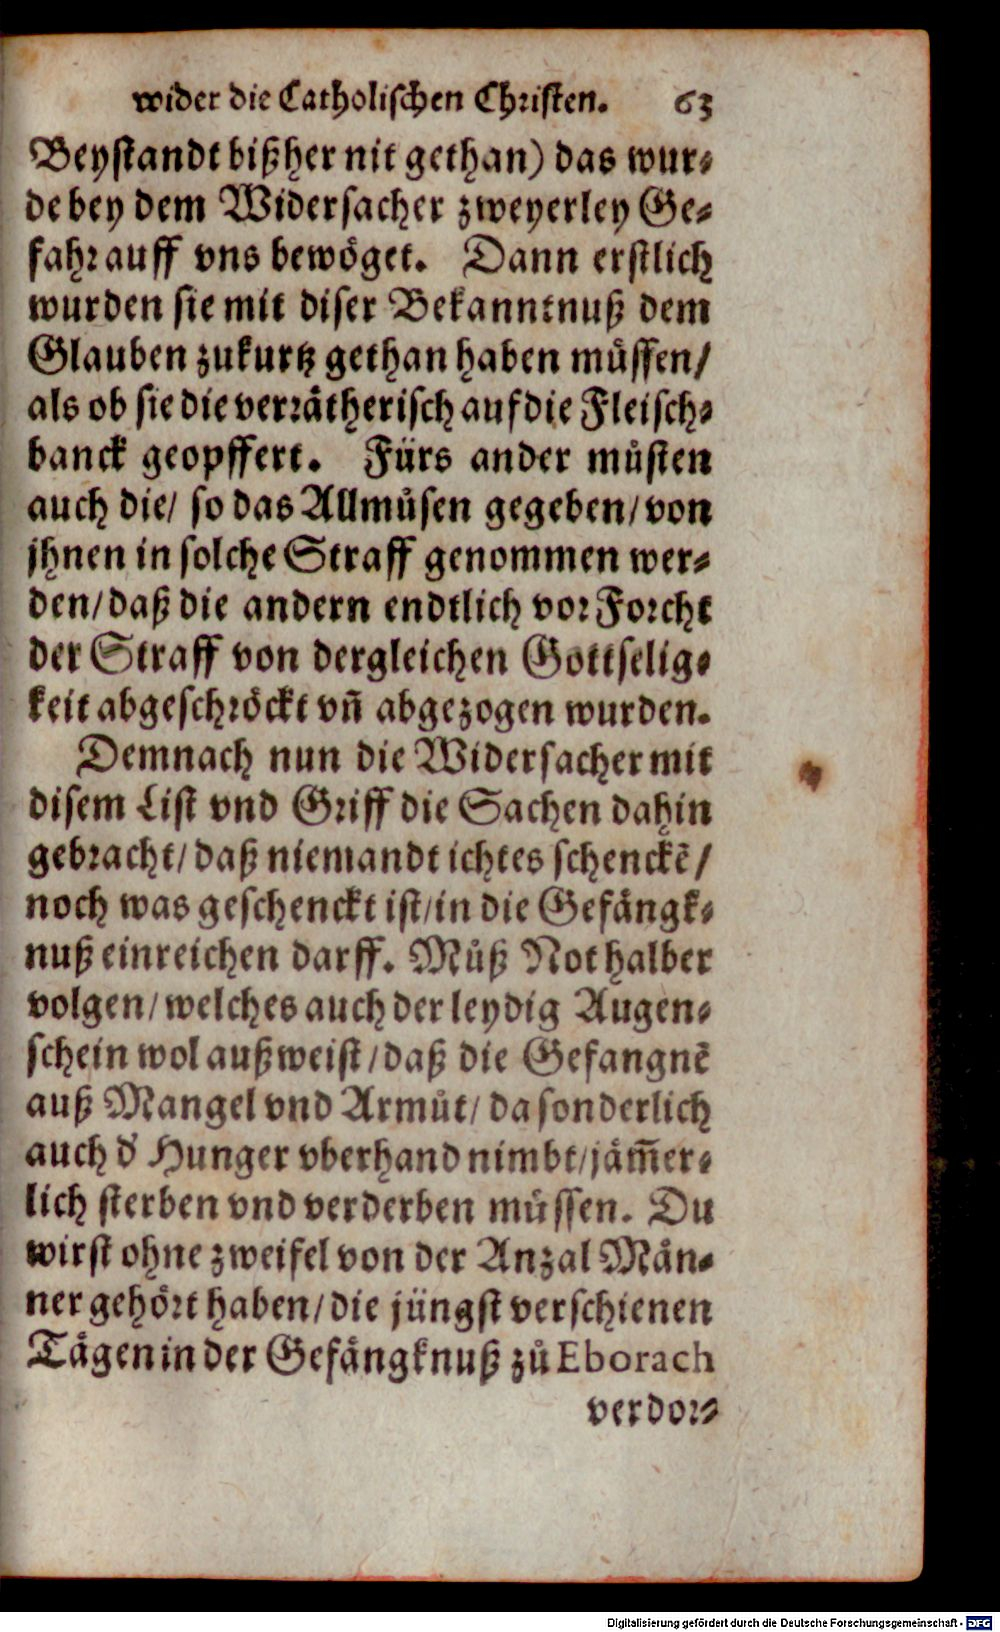 wider die Catholischen Christen. 63
Beystandt bißher nit gethan) das wur⸗
de bey dem Widersacher zweyerley Ge⸗
fahr auff vns bewöget. Dann erstlich
wurden sie mit diser Bekanntnuß dem
Glauben zukurtz gethan haben müssen/
als ob sie die verrätherisch auf die Fleisch⸗
banck geopffert. Fürs ander müsten
auch die/ so das Allmůsen gegeben/ von
jhnen in solche Straff genommen wer⸗
den/ daß die andern endtlich vor Forcht
der Straff von dergleichen Gottselig⸗
keit abgeschröckt vn̄ abgezogen wurden.
Demnach nun die Widersacher mit
disem List vnd Griff die Sachen dahin
gebracht/ daß niemandt ichtes schenckē/
noch was geschenckt ist/ in die Gefängk⸗
nuß einreichen darff. Můß Not halber
volgen/ welches auch der leydig Augen⸗
schein wol außweist/ daß die Gefangnē
auß Mangel vnd Armůt/ da sonderlich
auch d' Hunger vberhand nimbt/ jäm̄er⸗
lich sterben vnd verderben müssen. Du
wirst ohne zweifel von der Anzal Män⸗
ner gehört haben/ die jüngst verschienen
Tägen in der Gefängknuß zů Eborach
verdor⸗
Digitalisierung gefördert durch die Deutsche Forschungsgemeinschaft - DFG